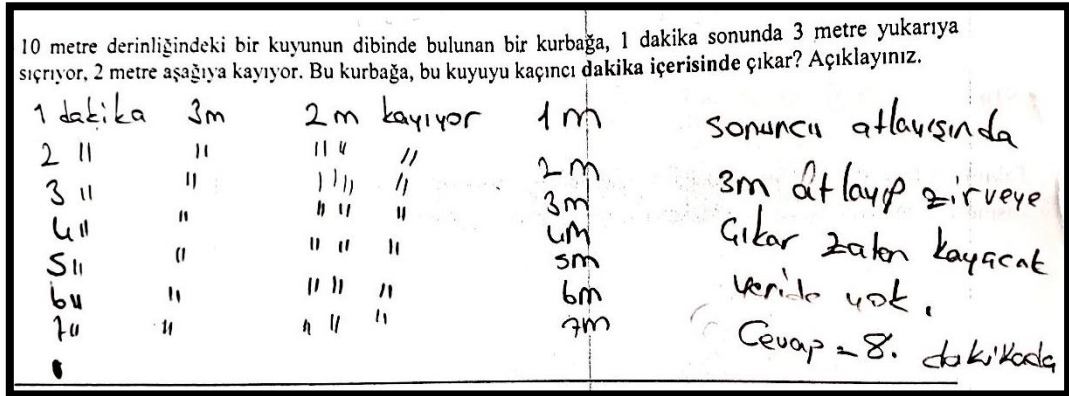 10 metre derinliğindeki bir kuyunun dibinde bulunan bir kurbağa, 1 dakika sonunda 3 metre yukarıya
sıçrıyor, 2 metre aşağıya kayıyor. Bu kurbağa, bu kuyuyu kaçıncı dakika içerisinde çıkar? Açıklayınız.
1 dakika 3m 2m kayıyor 1m
2 " " " " " 2m
3 " " " " " 3m
4 " " " " " 4m
5 " " " " " 5m
6 " " " " " 6m
7 " " " " " 7m
sonuncu atlayışında
3m atlayıp zirveye
çıkar zaten kayacak
yeride yok.
Cevap = 8. dakikada